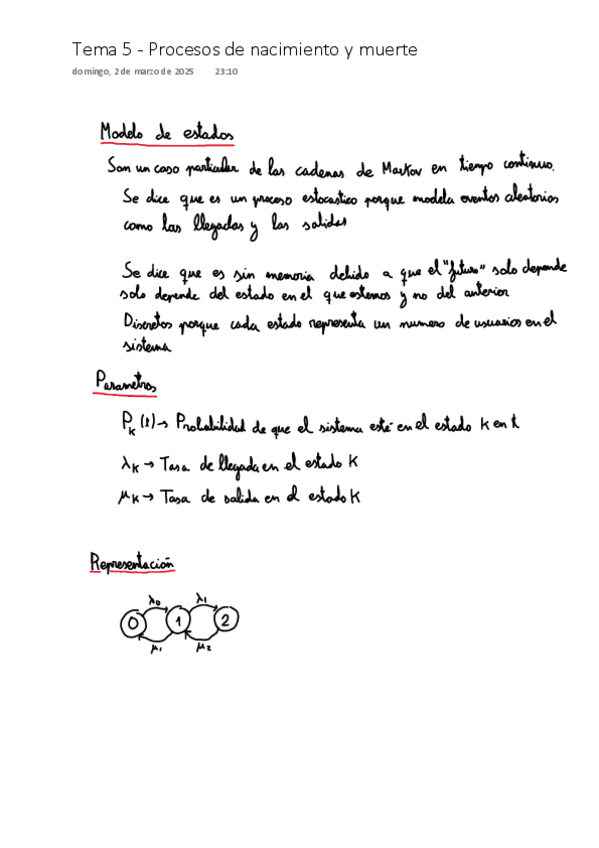 Tema 5 - Procesos de nacimiento y muerte
domingo, 2 de marzo de 2025 23:10
Modelo de estados
Son un caso particular de las cadenas de Markov en tiempo continuo.
Se dice que es un proceso estocastico porque modela eventos aleatorios
como las llegadas y las salidas
Se dice que es sin memoria debido a que el "futuro" solo depende
solo depende del estado en el que estemos y no del anterior
Discretos porque cada estado representa un numero de usuarios en el
sistema
Parametros
P_K (t) → Probabilidad de que el sistema esté en el estado K en t
λ_K → Tasa de llegada en el estado K
μ_K → Tasa de salida en el estado K
Representación
λ₀ λ₁
0 1 2
μ₁ μ₂